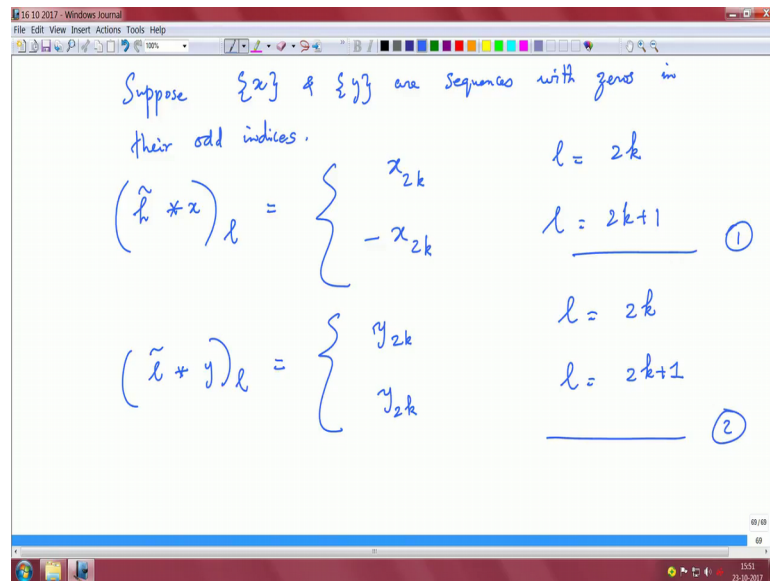 16 10 2017 - Windows Journal
File Edit View Insert Actions Tools Help
100%
Suppose {x} & {y} are sequences with zeros in
their odd indices.
(h̃ * x)_l = { x_{2k} l = 2k
- x_{2k} l = 2k+1 ①
(l̃ * y)_l = { y_{2k} l = 2k
y_{2k} l = 2k+1 ②
69/69
69
15:51
23-10-2017